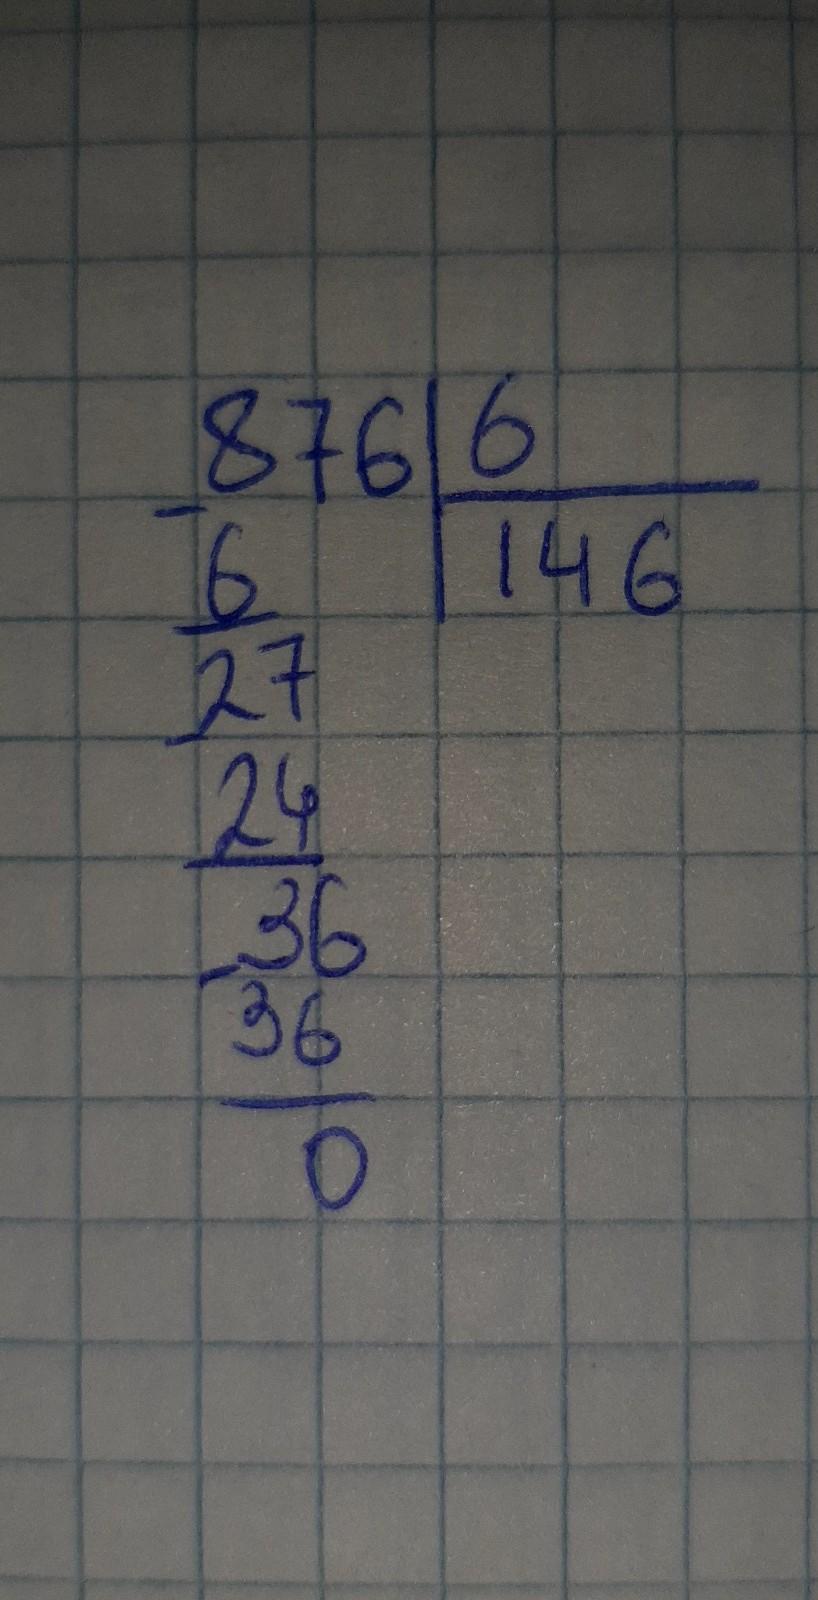 876 6
- 146
6
27
-
24
36
-
36
0